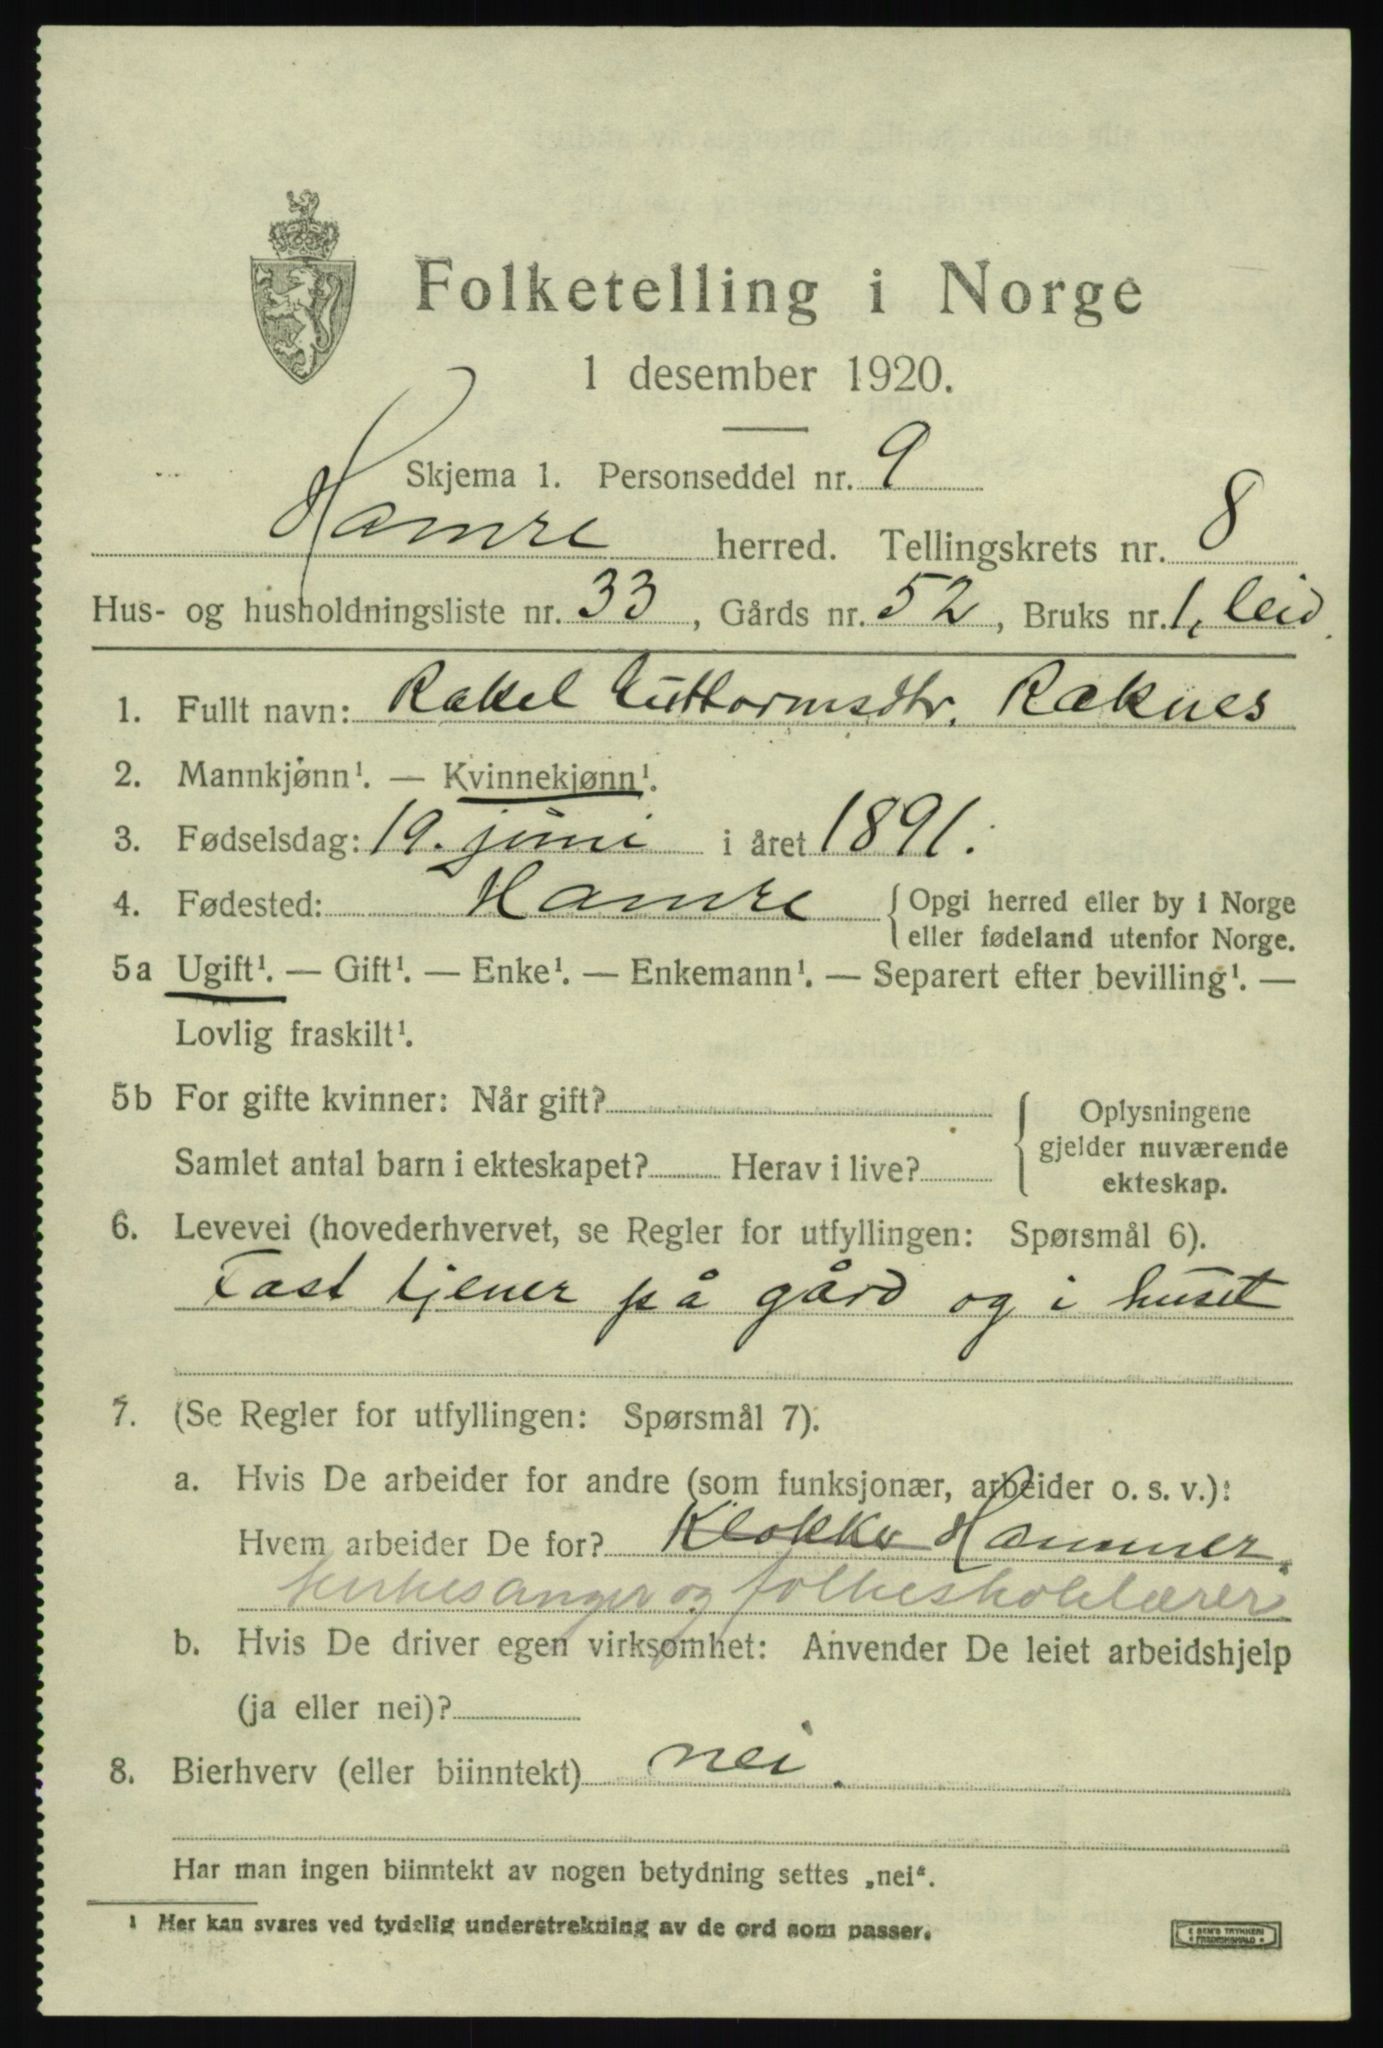 Folketelling i Norge
1 desember 1920.
Skjema 1. Personseddel nr. 9
Hamre herred. Tellingskrets nr. 8
Hus- og husholdningsliste nr. 33, Gårds nr. 52, Bruks nr. 1, leid.
1. Fullt navn: Rakel Guttormsdtr. Raknes
2. Mannkjønn¹. — Kvinnekjønn¹.
3. Fødselsdag: 19. juni i året 1891.
4. Fødested: Hamre { Opgi herred eller by i Norge
eller fødeland utenfor Norge.
5a Ugift¹. — Gift¹. — Enke¹. — Enkemann¹. — Separert efter bevilling¹. —
Lovlig fraskilt¹.
5b For gifte kvinner: Når gift? { Oplysningene
gjelder nuværende
Samlet antal barn i ekteskapet? Herav i live?
ekteskap.
6. Levevei (hovederhvervet, se Regler for utfyllingen: Spørsmål 6).
Fast tjener på gård og i huset
7. (Se Regler for utfyllingen: Spørsmål 7).
a. Hvis De arbeider for andre (som funksjonær, arbeider o. s. v.):
Hvem arbeider De for? Klokker Hammer.
kirkesanger og folkeskolelærer
b. Hvis De driver egen virksomhet: Anvender De leiet arbeidshjelp
(ja eller nei)?
8. Bierhverv (eller biinntekt) nei.
Har man ingen biinntekt av nogen betydning settes „nei“.
¹ Her kan svares ved tydelig understrekning av de ord som passer.